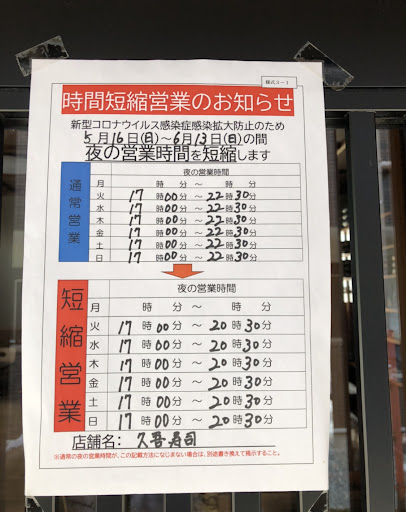 様式3-1
時間短縮営業のお知らせ
新型コロナウイルス感染症感染拡大防止のため
5月16日(日)～6月13日(日)の間
夜の営業時間を短縮します
通常営業
夜の営業時間
月 時 分 ～ 時 分
火 17時00分 ～ 22時30分
水 17時00分 ～ 22時30分
木 17時00分 ～ 22時30分
金 17時00分 ～ 22時30分
土 17時00分 ～ 22時30分
日 17時00分 ～ 22時30分
短縮営業
夜の営業時間
月 時 分 ～ 時 分
火 17時00分 ～ 20時30分
水 17時00分 ～ 20時30分
木 17時00分 ～ 20時30分
金 17時00分 ～ 20時30分
土 17時00分 ～ 20時30分
日 17時00分 ～ 20時30分
店舗名: 久吾寿司
※通常の夜の営業時間が、この記載方法になじまない場合は、別途書き換えて掲示すること。